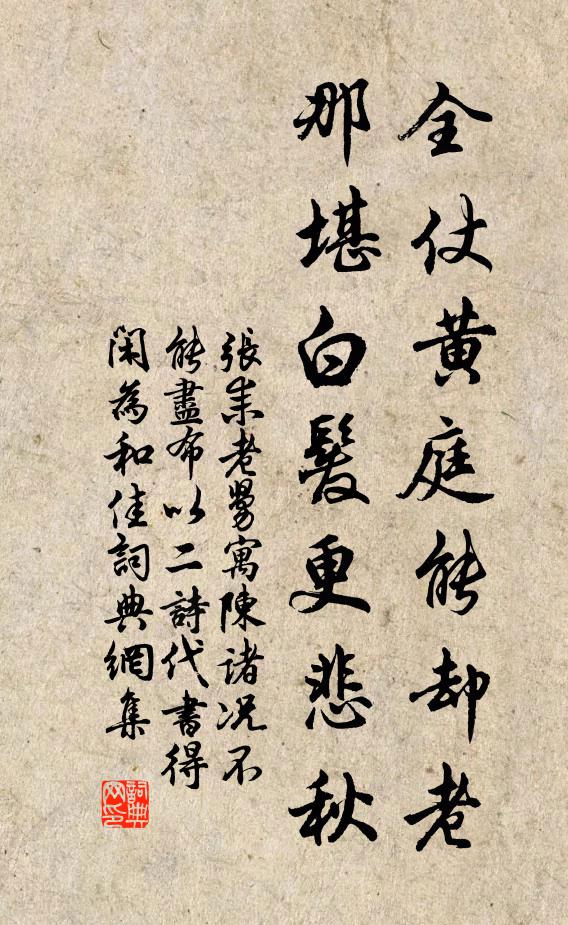 全仗黃庭能却老
那堪白髮更悲秋
張朱老舅寓陳諸况不
能盡布以二詩代書得
閑為和佳詞典網集
詞典
网印